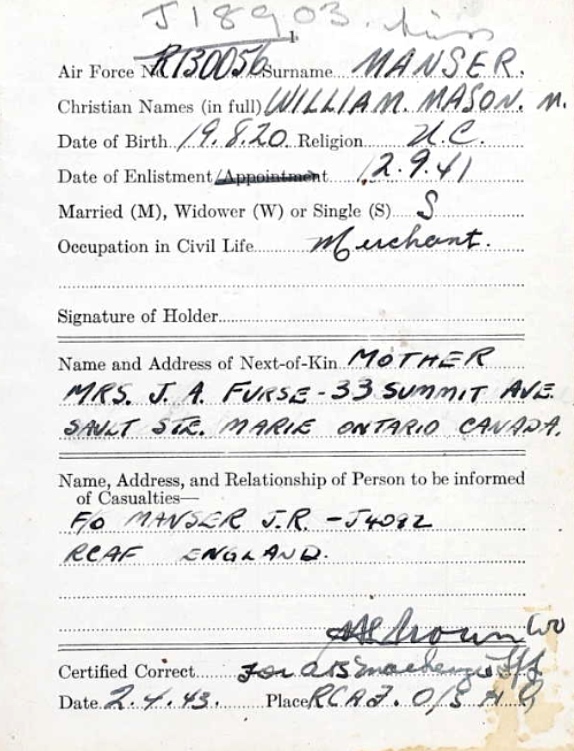 J18903.
1
Air Force No R130056 Surname MANSER.
Christian Names (in full) WILLIAM. MASON. M.
Date of Birth 19.8.20. Religion U.C.
Date of Enlistment/Appointment 12.9.41
Married (M), Widower (W) or Single (S) S
Occupation in Civil Life Merchant.
Signature of Holder
Name and Address of Next-of-Kin MOTHER
MRS. J. A. FURSE - 33 SUMMIT AVE.
SAULT STE. MARIE ONTARIO CANADA.
Name, Address, and Relationship of Person to be informed
of Casualties—
F/O MANSER J.R. - J4082
RCAF ENGLAND.
Brown WO
Certified Correct for
Date 2.4.43. Place RCAF. O/S H Q